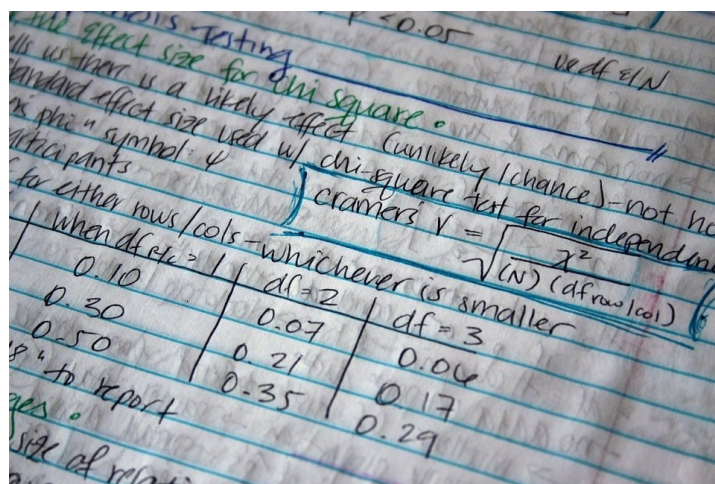 Testing < 0.05
the effect size for chi square. w/ df & N
us there is a likely effect (unlikely / chance) - not
standard effect size used w/ chi-square test for independen
phi" symbol: φ cramers V = √ χ² / (N) (df row/col)
articipants
for either rows/cols - whichever is smaller
when df r/c = 1 df = 2 df = 3
0.10 0.07 0.06
0.30 0.21 0.17
0.50 0.35 0.29
" to report
size of